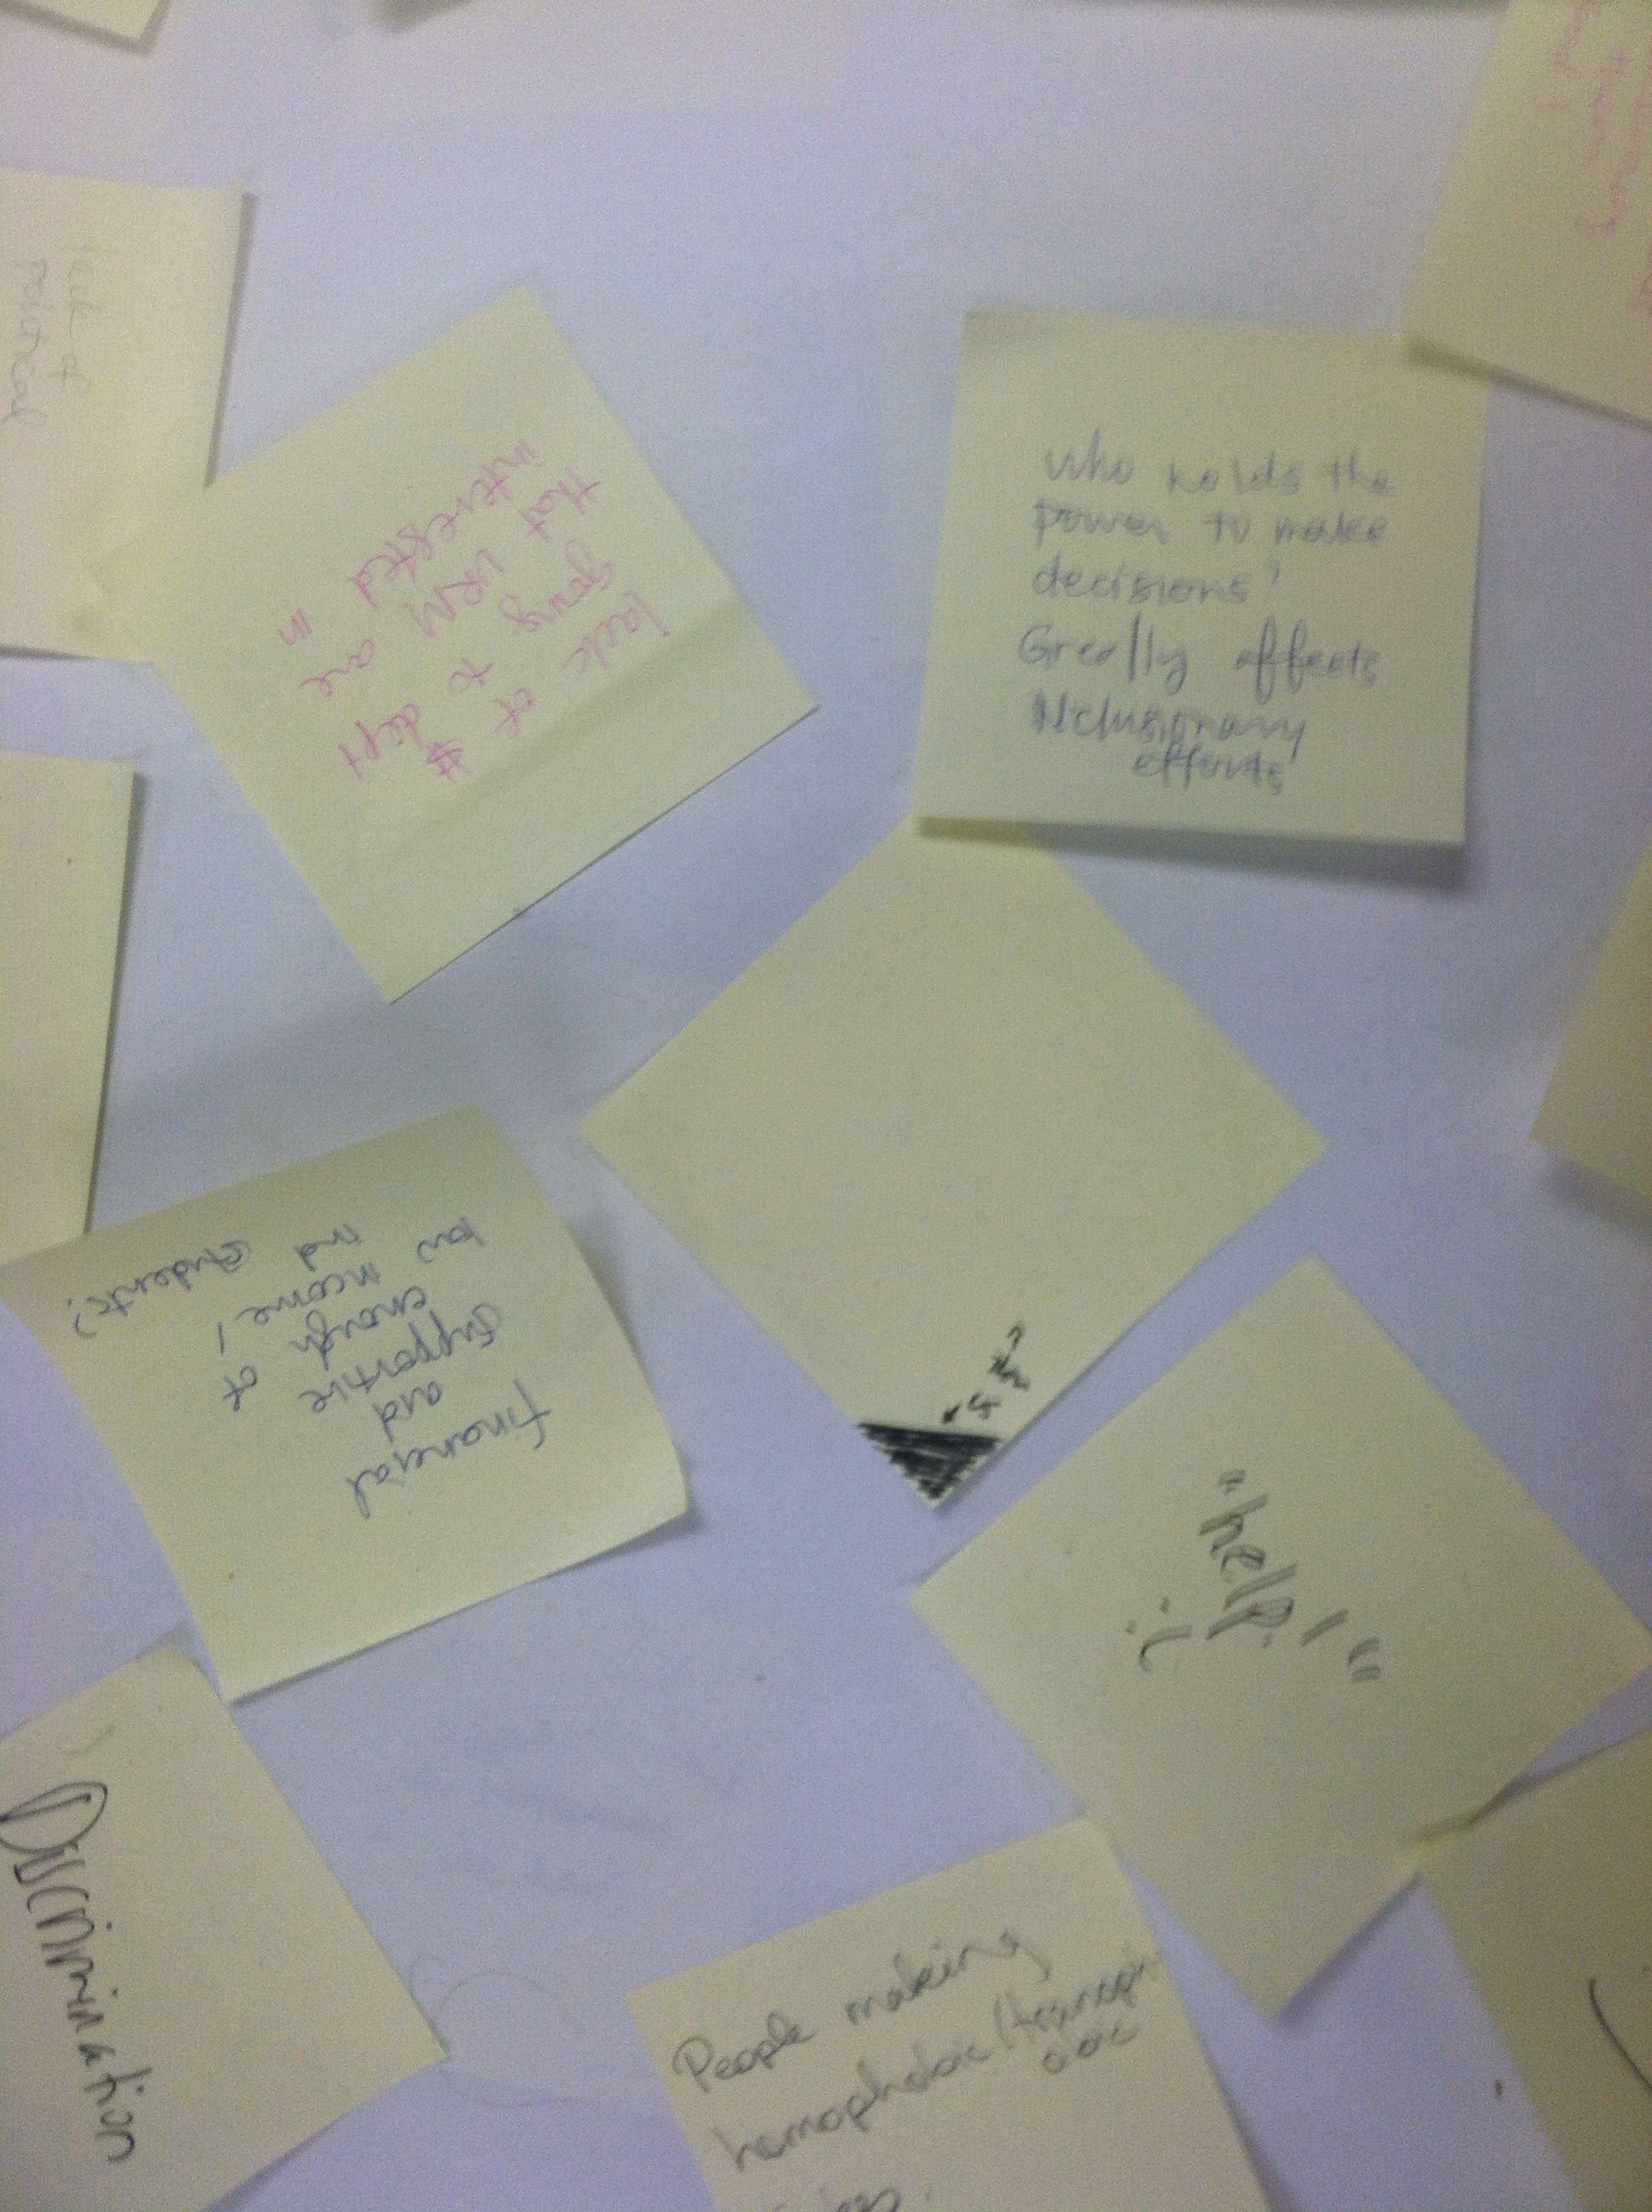 lack of
political
lack of #
going to dept
that URM are
interested in
Who holds the
power to make
decisions?
Greatly affects
efforts
Financial
and
supportive
enough of
income /
students?
"help!"
:(
Discrimination
People making
homophobic/transph
obic